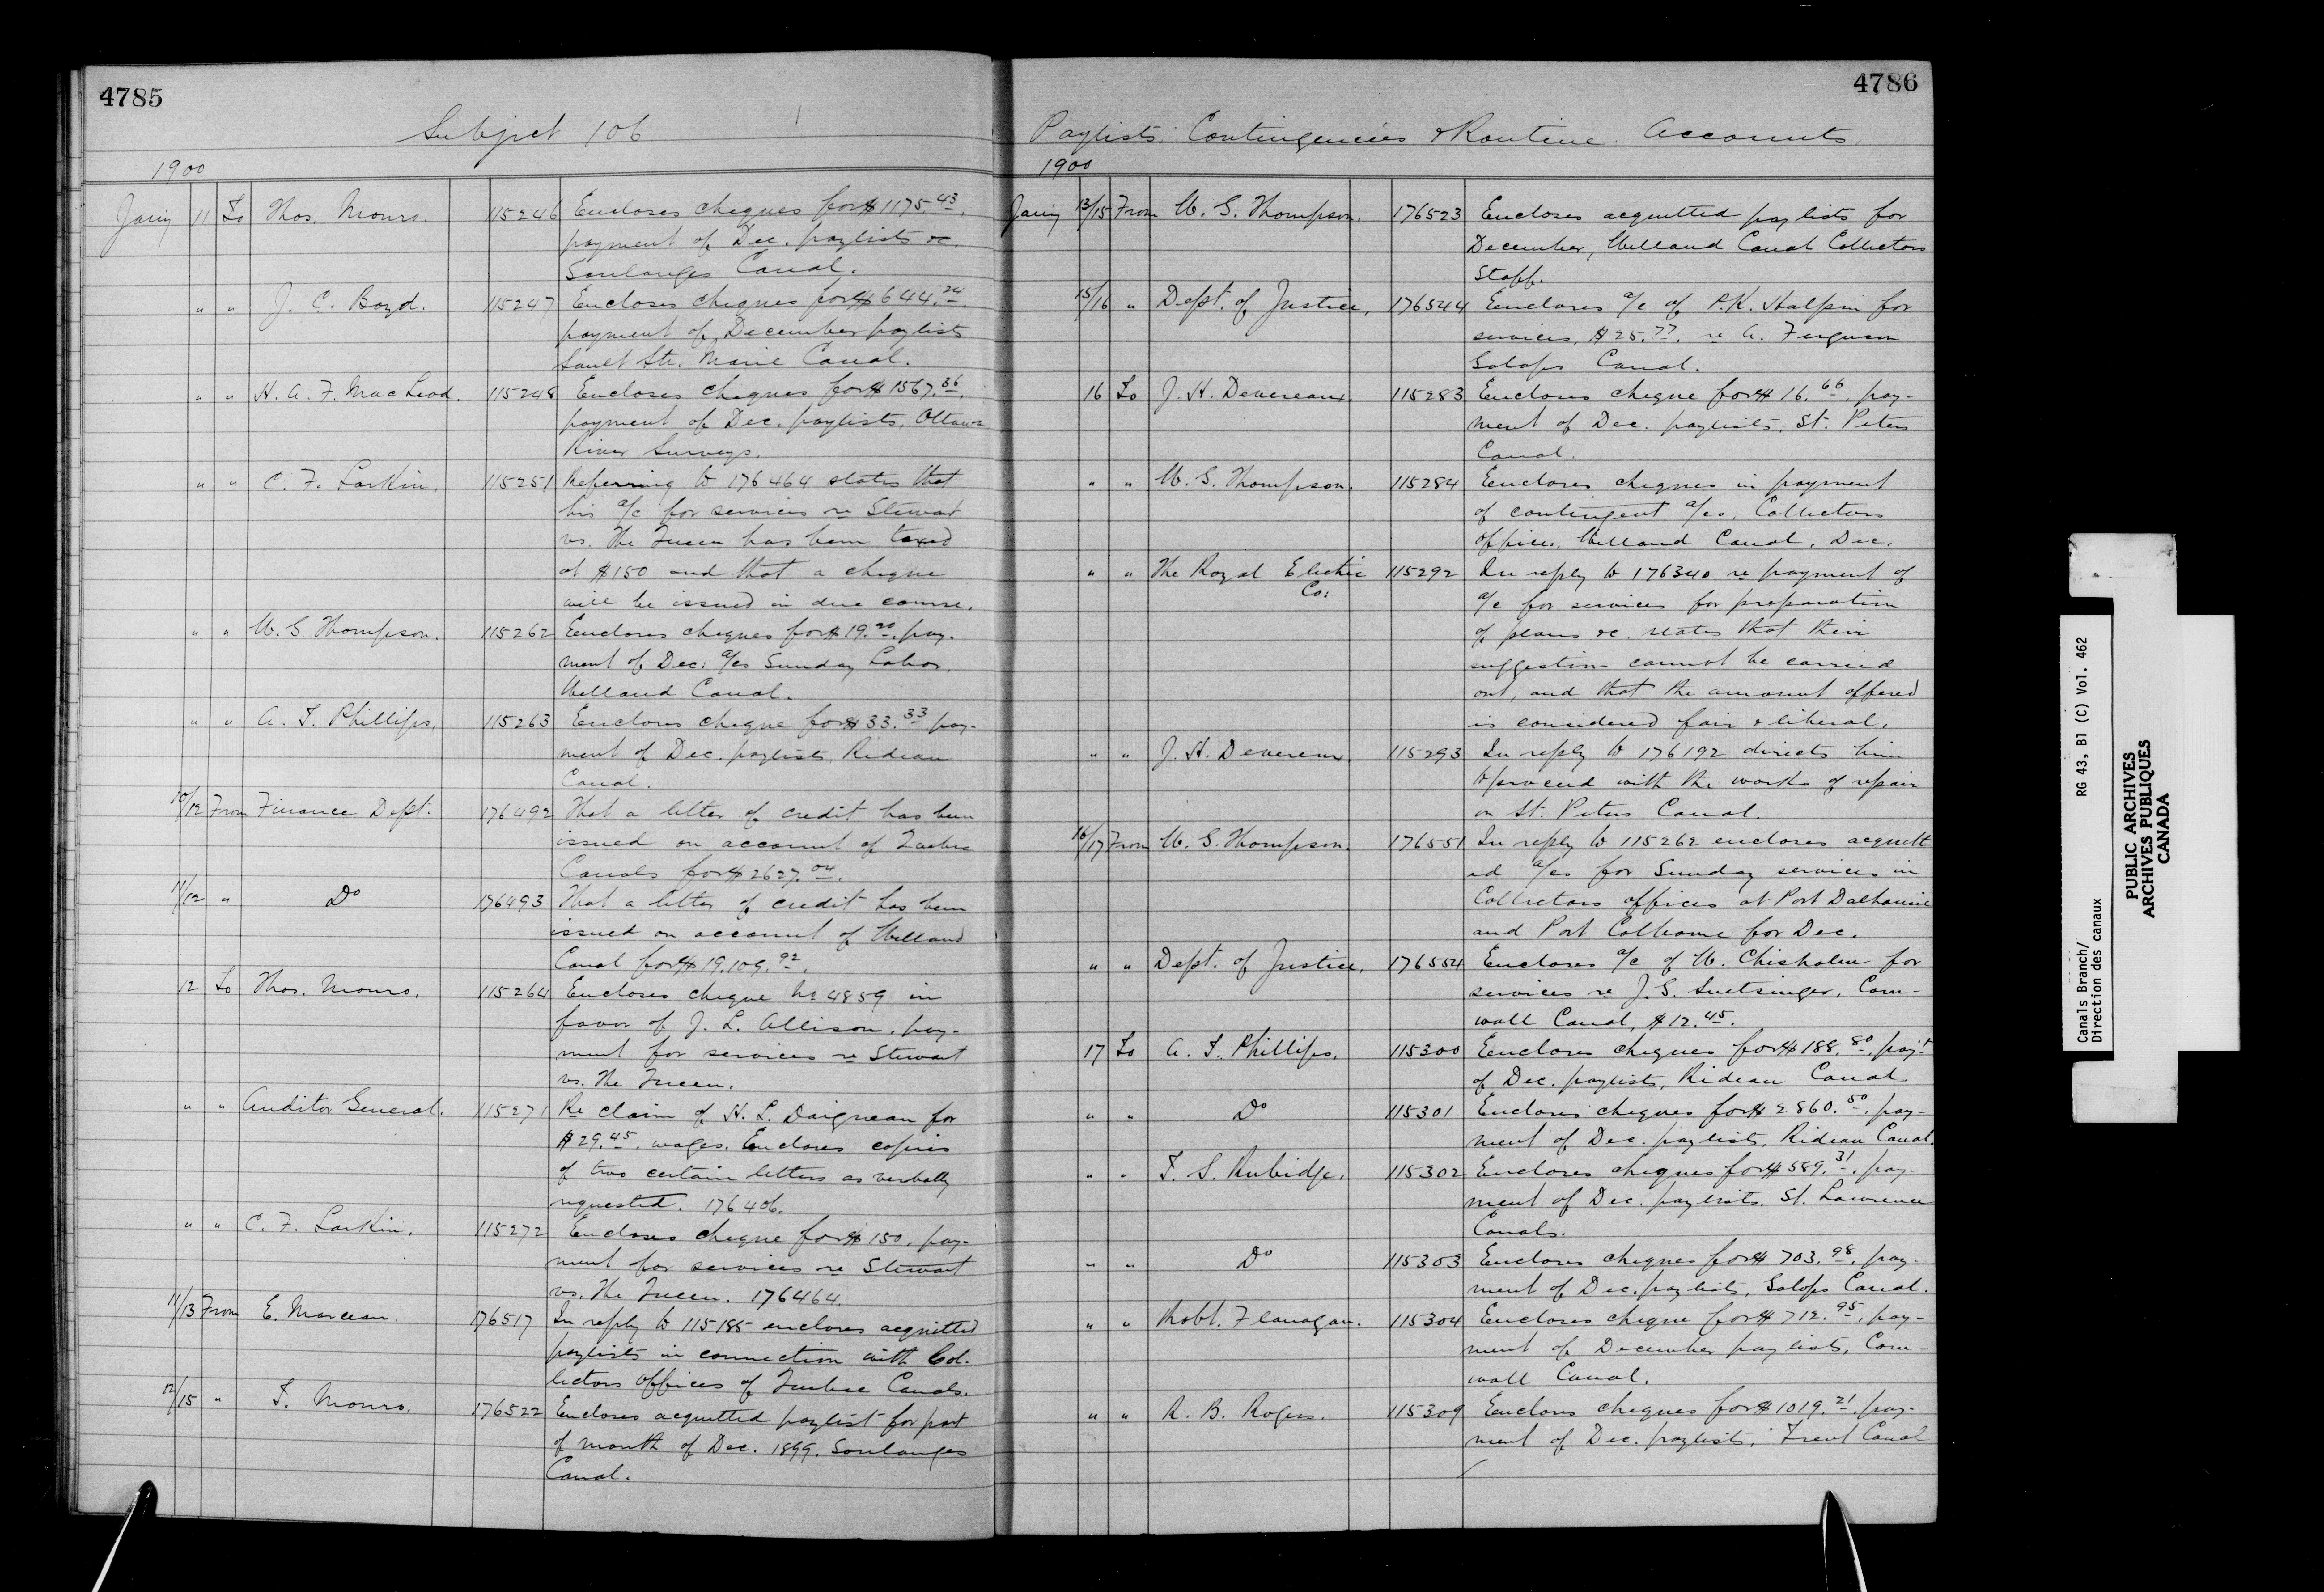 4785
Subject 106
1900
Jany 11 To Thos. Monro. 115246 Encloses cheques for $1175.43.
payment of Dec. paylists &c.
Soulanges Canal.
" " J. C. Boyd. 115247 Encloses cheques for $644.24.
payment of December paylists
Sault Ste. Marie Canal.
" " H. A. F. MacLeod. 115248 Encloses cheques for $1567.36.
payment of Dec. paylists, Ottawa
River Surveys.
" " C. F. Larkin. 115251 Referring to 176464 states that
his a/c for services re Stewart
vs. The Queen has been taxed
at $150 and that a cheque
will be issued in due course.
" " W. G. Thompson. 115262 Encloses cheques for $19.20. pay-
ment of Dec: a/cs Sunday Labor,
Welland Canal.
" " A. T. Phillips. 115263 Encloses cheque for $33.33 pay-
ment of Dec. paylists, Rideau
Canal.
10/12 From Finance Dept. 176492 That a letter of credit has been
issued on account of Quebec
Canals for $2627.04.
11/12 " Do 176493 That a letter of credit has been
issued on account of Welland
Canal for $19.109.92.
12 To Thos. Monro. 115264 Encloses cheque No 4859 in
favor of J. L. Allison, pay-
ment for services re Stewart
vs. The Queen.
" " Auditor General. 115271 Re claim of H. L. Daigneau for
$29.45. wages. Encloses copies
of two certain letters as verbally
requested. 176406.
" " C. F. Larkin. 115272 Encloses cheque for $150, pay-
ment for services re Stewart
vs. The Queen. 176464.
11/13 From E. Marceau. 176517 In reply to 115185 encloses acquitted
paylists in connection with Col-
lectors Offices of Quebec Canals.
12/15 " T. Monro. 176522 Encloses acquitted paylist for part
of month of Dec. 1899. Soulanges
Canal.
4786
Paylists Contingencies & Routine Accounts
1900
Jany 13/15 From W. G. Thompson. 176523 Encloses acquitted paylists for
December, Welland Canal Collectors
Staff.
15/16 " Dept. of Justice, 176544 Encloses a/c of P.K. Halpin for
services, $25.77. re A. Ferguson
Galops Canal.
16 To J. H. Devereaux 115283 Encloses cheque for $16.66. pay-
ment of Dec. paylists, St. Peters
Canal.
" " W. G. Thompson. 115284 Encloses cheques in payment
of contingent a/cs, Collectors
offices, Welland Canal, Dec.
" " The Royal Electric 115292 In reply to 176340 re payment of
Co: a/c for services for preparation
of plans &c. states that their
suggestion cannot be carried
out, and that the amount offered
is considered fair & liberal.
" " J. H. Devereux. 115293 In reply to 176192 directs him
to proceed with the works of repair
on St. Peters Canal.
16/17 From W. G. Thompson. 176551 In reply to 115262 encloses acquitt-
ed a/cs for Sunday services in
Collectors offices at Port Dalhousie
and Port Colborne for Dec.
" " Dept. of Justice, 176554 Encloses a/c of W. Chisholm for
services re J. G. Snetsinger, Corn-
wall Canal, $12.45.
17 To A. T. Phillips. 115300 Encloses cheques for $188.80. pay't
of Dec. paylists, Rideau Canal.
" " Do 115301 Encloses cheques for $2860.50. pay-
ment of Dec. paylists, Rideau Canal.
" " T. S. Rubidge. 115302 Encloses cheques for $589.31. pay-
ment of Dec. paylists. St. Lawrence
Canals.
" " Do 115303 Encloses cheques for $703.98. pay-
ment of Dec. paylists, Galops Canal.
" " Robt. Flanagan. 115304 Encloses cheque for $712.95. pay-
ment of December paylists, Corn-
wall Canal.
" " R. B. Rogers. 115309 Encloses cheques for $1019.21. pay-
ment of Dec. paylists, Trent Canal
Canals Branch/ RG 43, B1 (C) Vol. 462
Direction des canaux
PUBLIC ARCHIVES
ARCHIVES PUBLIQUES
CANADA